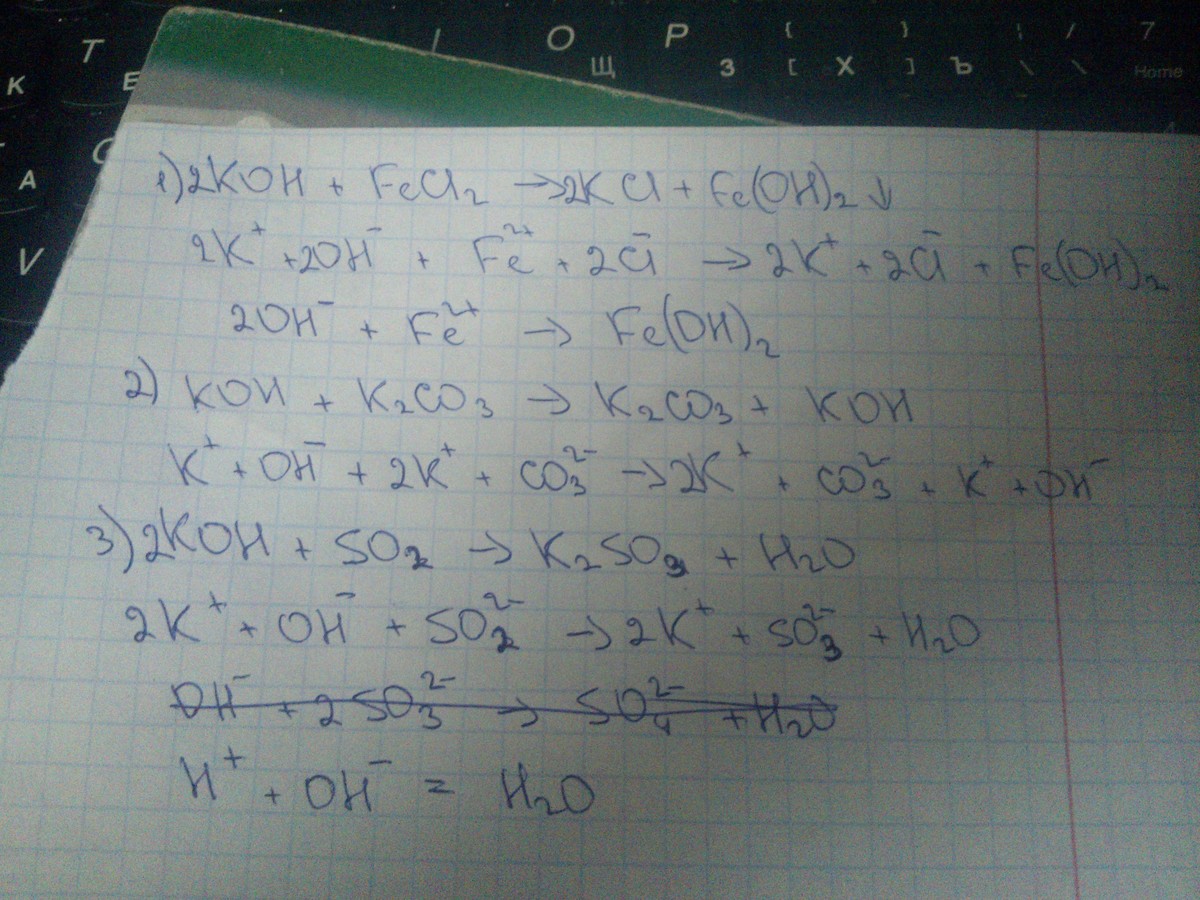 T I O P { } | / 7
К Е Щ З [ Х ] Ъ \ \ Home
А
V
1) 2KOH + FeCl₂ → 2KCl + Fe(OH)₂ ↓
2K⁺ + 2OH⁻ + Fe²⁺ + 2Cl⁻ → 2K⁺ + 2Cl⁻ + Fe(OH)₂
2OH⁻ + Fe²⁺ → Fe(OH)₂
2) KOH + K₂CO₃ → K₂CO₃ + KOH
K⁺ + OH⁻ + 2K⁺ + CO₃²⁻ → 2K⁺ + CO₃²⁻ + K⁺ + OH⁻
3) 2KOH + SO₂ → K₂SO₃ + H₂O
2K⁺ + OH⁻ + SO₂²⁻ → 2K⁺ + SO₃²⁻ + H₂O
OH⁻ + 2SO₃²⁻ → SO₄²⁻ + H₂O
H⁺ + OH⁻ = H₂O